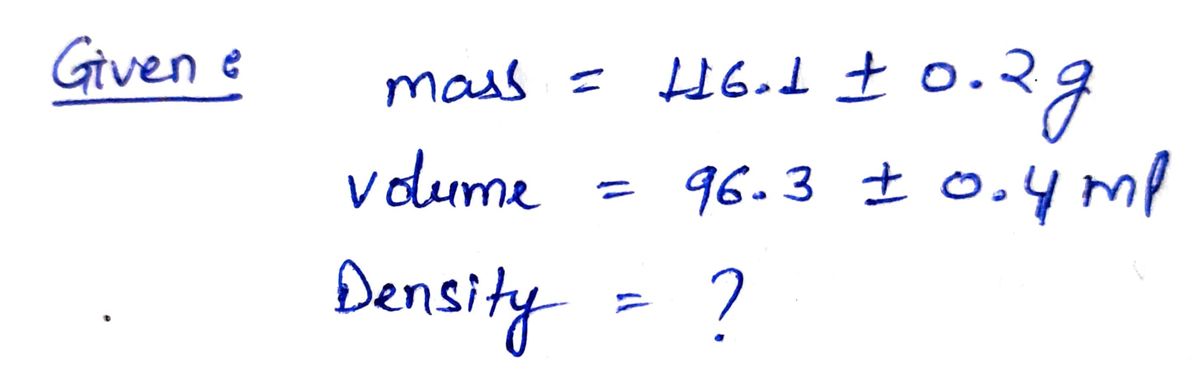 Given: mass = 116.1 ± 0.2 g
volume = 96.3 ± 0.4 ml
Density = ?